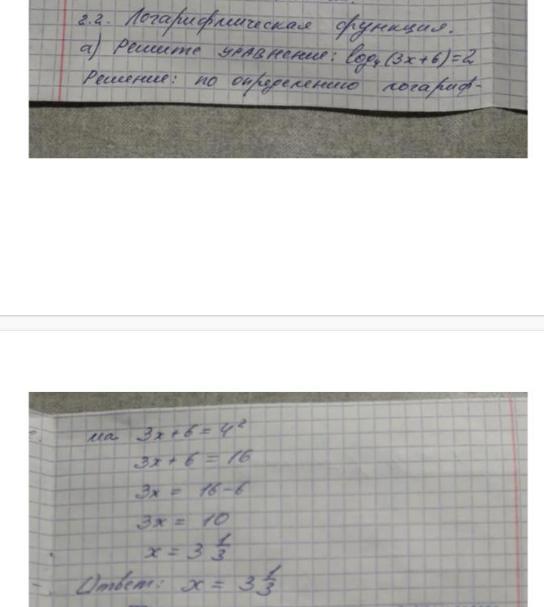 2.2. Логарифмическая функция.
а) Решите уравнение: log₄(3x+6)=2
Решение: по определению логариф-
ма 3x+6=4²
3x+6=16
3x = 16-6
3x = 10
x = 3 1/3
Ответ: x = 3 1/3